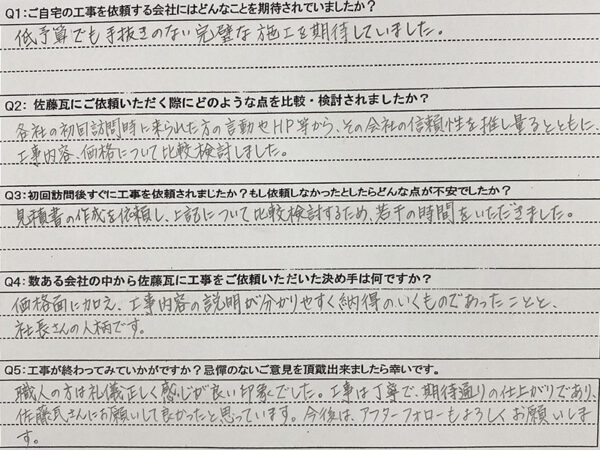 Q1:ご自宅の工事を依頼する会社にはどんなことを期待されていましたか?
低予算でも手抜きのない完璧な施工を期待していました。
Q2: 佐藤瓦にご依頼いただく際にどのような点を比較・検討されましたか?
各社の初回訪問時に来られた方の言動やHP等から、その会社の信頼性を推し量るとともに、
工事内容、価格について比較検討しました。
Q3:初回訪問後すぐに工事を依頼されましたか?もし依頼しなかったとしたらどんな点が不安でしたか?
見積書の作成を依頼し、上記について比較検討するため、若干の時間をいただきました。
Q4:数ある会社の中から佐藤瓦に工事をご依頼いただいた決め手は何ですか?
価格面に加え、工事内容の説明が分かりやすく納得のいくものであったことと、
社長さんの人柄です。
Q5:工事が終わってみていかがですか?忌憚のないご意見を頂戴出来ましたら幸いです。
職人の方は礼儀正しく感じが良い印象でした。工事は丁寧で、期待通りの仕上がりであり、
佐藤瓦さんにお願いして良かったと思っています。今後は、アフターフォローもよろしくお願いしま
す。